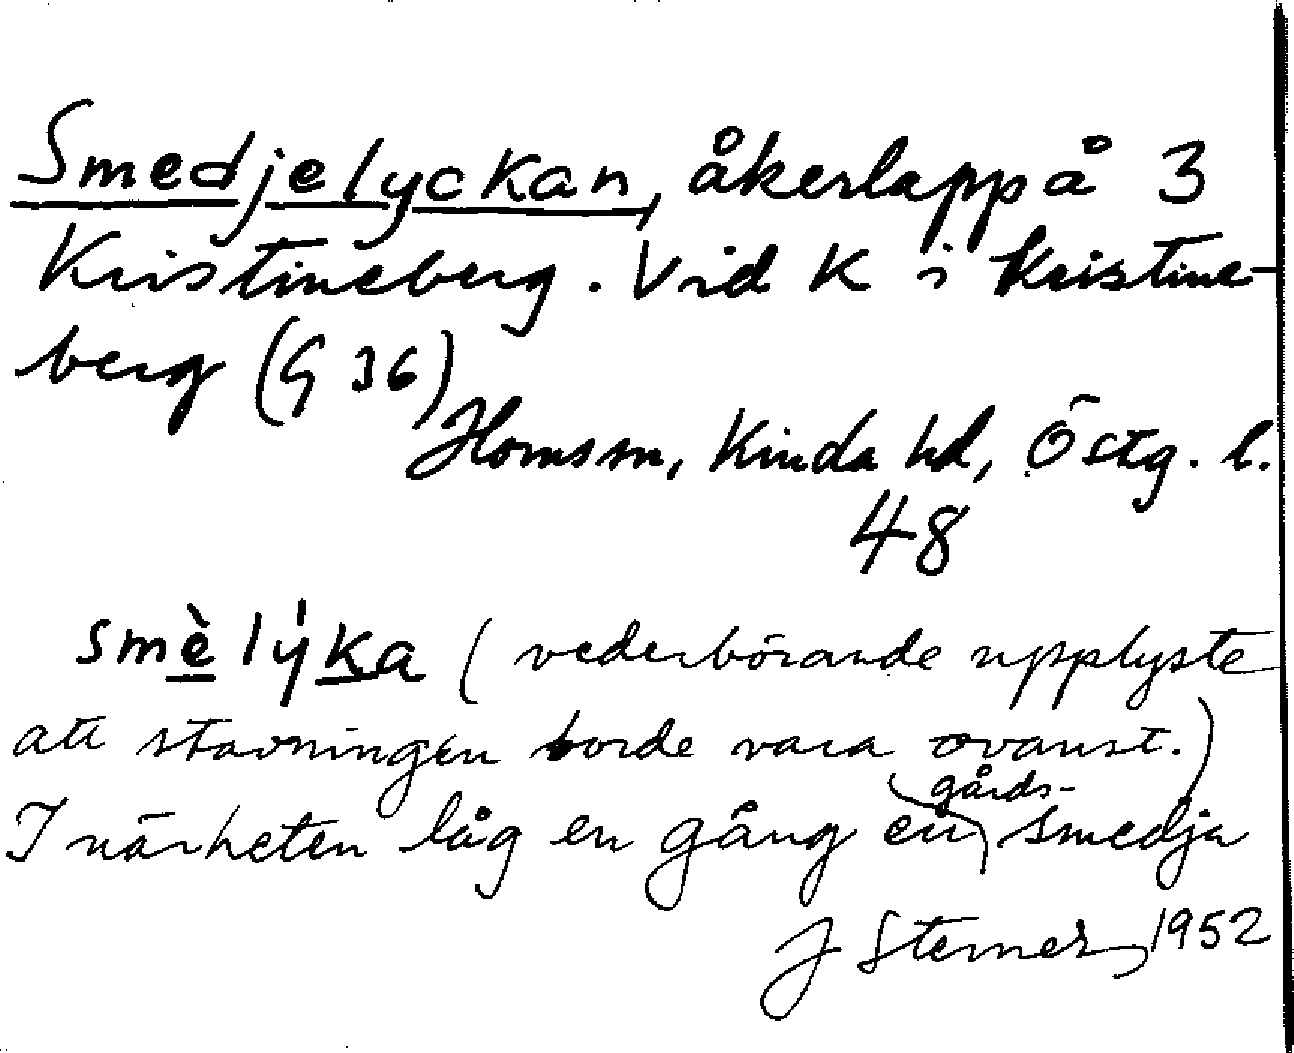 Smedjelyckan, åkerlapp å 3
Kristineberg. Vid K i Kristine-
berg (G 36)
Homsm, Kinda hd, Östg. l.
48
smè lýka (vederbörande upplyste
att stavningen borde vara ovanst.)
I närheten låg en gång en gårds-smedja
J Sterner, 1952